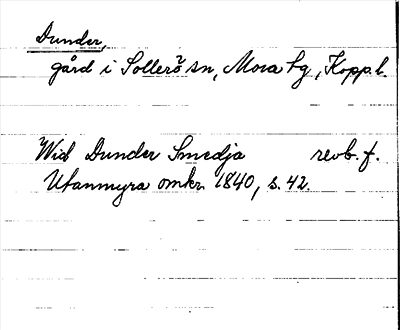 Dunder,
gård i Sollerö sn, Mora tg, Kopp.l.
Wid Dunder Smedja revb. f.
Utanmyra omkr. 1840, s. 42.